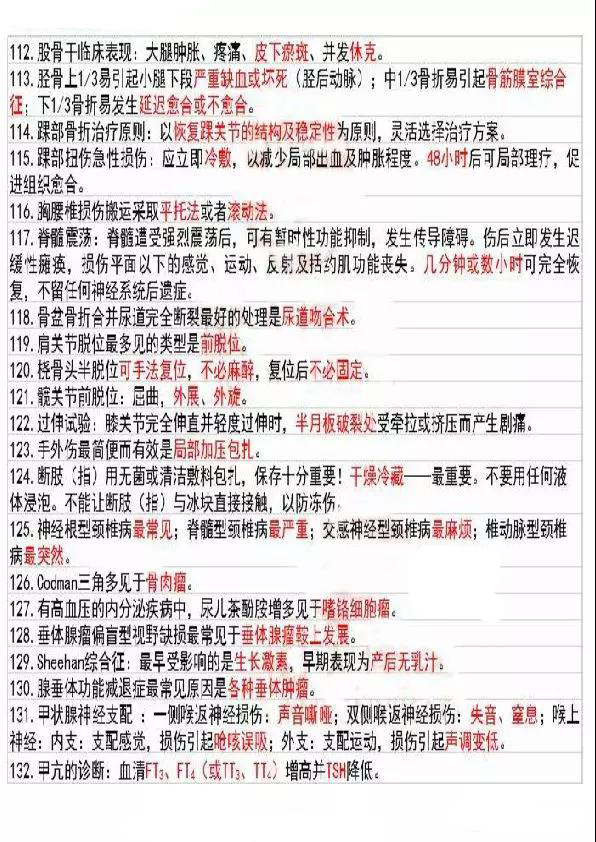 112.股骨干临床表现：大腿肿胀、疼痛、皮下瘀斑、并发休克。
113.胫骨上1/3易引起小腿下段严重缺血或坏死（胫后动脉）；中1/3骨折易引起骨筋膜室综合
征；下1/3骨折易发生延迟愈合或不愈合。
114.踝部骨折治疗原则：以恢复踝关节的结构及稳定性为原则，灵活选择治疗方案。
115.踝部扭伤急性损伤：应立即冷敷，以减少局部出血及肿胀程度。48小时后可局部理疗，促
进组织愈合。
116.胸腰椎损伤搬运采取平托法或者滚动法。
117.脊髓震荡：脊髓遭受强烈震荡后，可有暂时性功能抑制，发生传导障碍。伤后立即发生迟
缓性瘫痪，损伤平面以下的感觉、运动、反射及括约肌功能丧失。几分钟或数小时可完全恢
复，不留任何神经系统后遗症。
118.骨盆骨折合并尿道完全断裂最好的处理是尿道吻合术。
119.肩关节脱位最多见的类型是前脱位。
120.桡骨头半脱位可手法复位，不必麻醉，复位后不必固定。
121.髋关节前脱位：屈曲，外展、外旋。
122.过伸试验：膝关节完全伸直并轻度过伸时，半月板破裂处受牵拉或挤压而产生剧痛。
123.手外伤最简便而有效是局部加压包扎。
124.断肢（指）用无菌或清洁敷料包扎，保存十分重要！干燥冷藏——最重要。不要用任何液
体浸泡。不能让断肢（指）与冰块直接接触，以防冻伤。
125.神经根型颈椎病最常见；脊髓型颈椎病最严重；交感神经型颈椎病最麻烦；椎动脉型颈椎
病最突然。
126.Codman三角多见于骨肉瘤。
127.有高血压的内分泌疾病中，尿儿茶酚胺增多见于嗜铬细胞瘤。
128.垂体腺瘤偏盲型视野缺损最常见于垂体腺瘤鞍上发展。
129.Sheehan综合征：最早受影响的是生长激素，早期表现为产后无乳汁。
130.腺垂体功能减退症最常见原因是各种垂体肿瘤。
131.甲状腺神经支配：一侧喉返神经损伤：声音嘶哑；双侧喉返神经损伤：失音、窒息；喉上
神经：内支：支配感觉，损伤引起呛咳误吸；外支：支配运动，损伤引起声调变低。
132.甲亢的诊断：血清FT₃、FT₄（或TT₃、TT₄）增高并TSH降低。